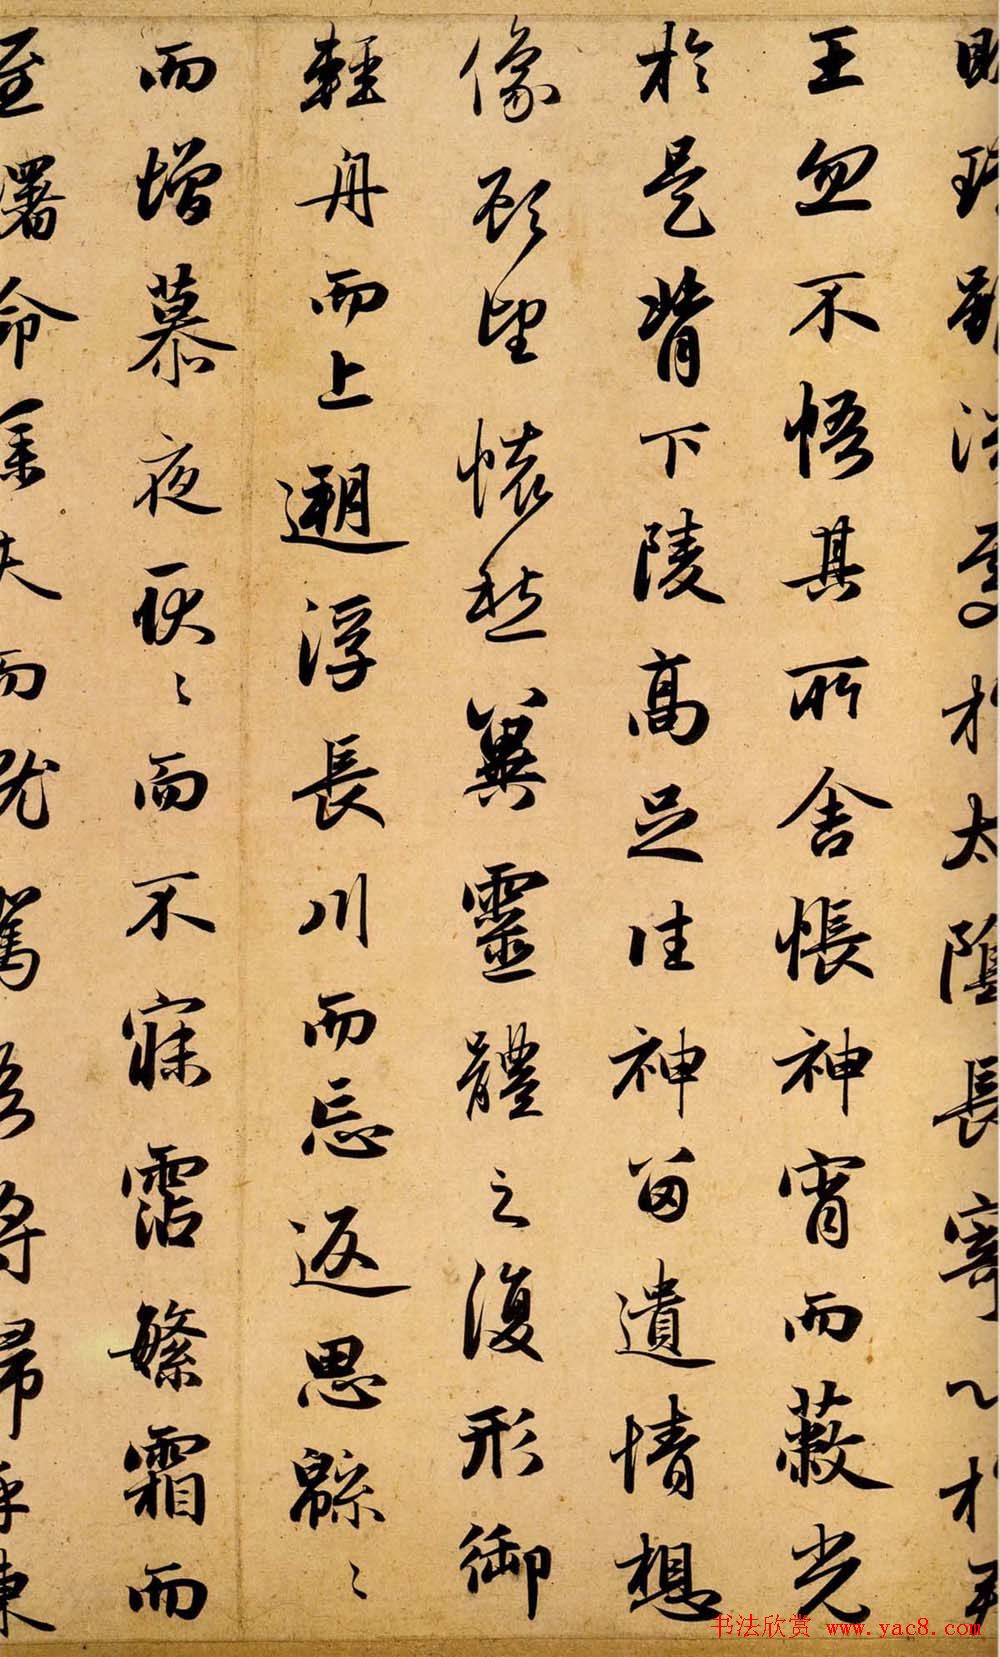 明璫雖潛處於太陰長寄心於君
王忽不悟其所舍悵神宵而蔽光
於是背下陵高足往神留遺情想
像顧望懷愁冀靈體之復形御
輕舟而上遡浮長川而忘返思緜〻
而增慕夜耿〻而不寐霑繁霜而
至曙命僕夫而就駕吾將歸乎東
书法欣赏 www.yac8.com